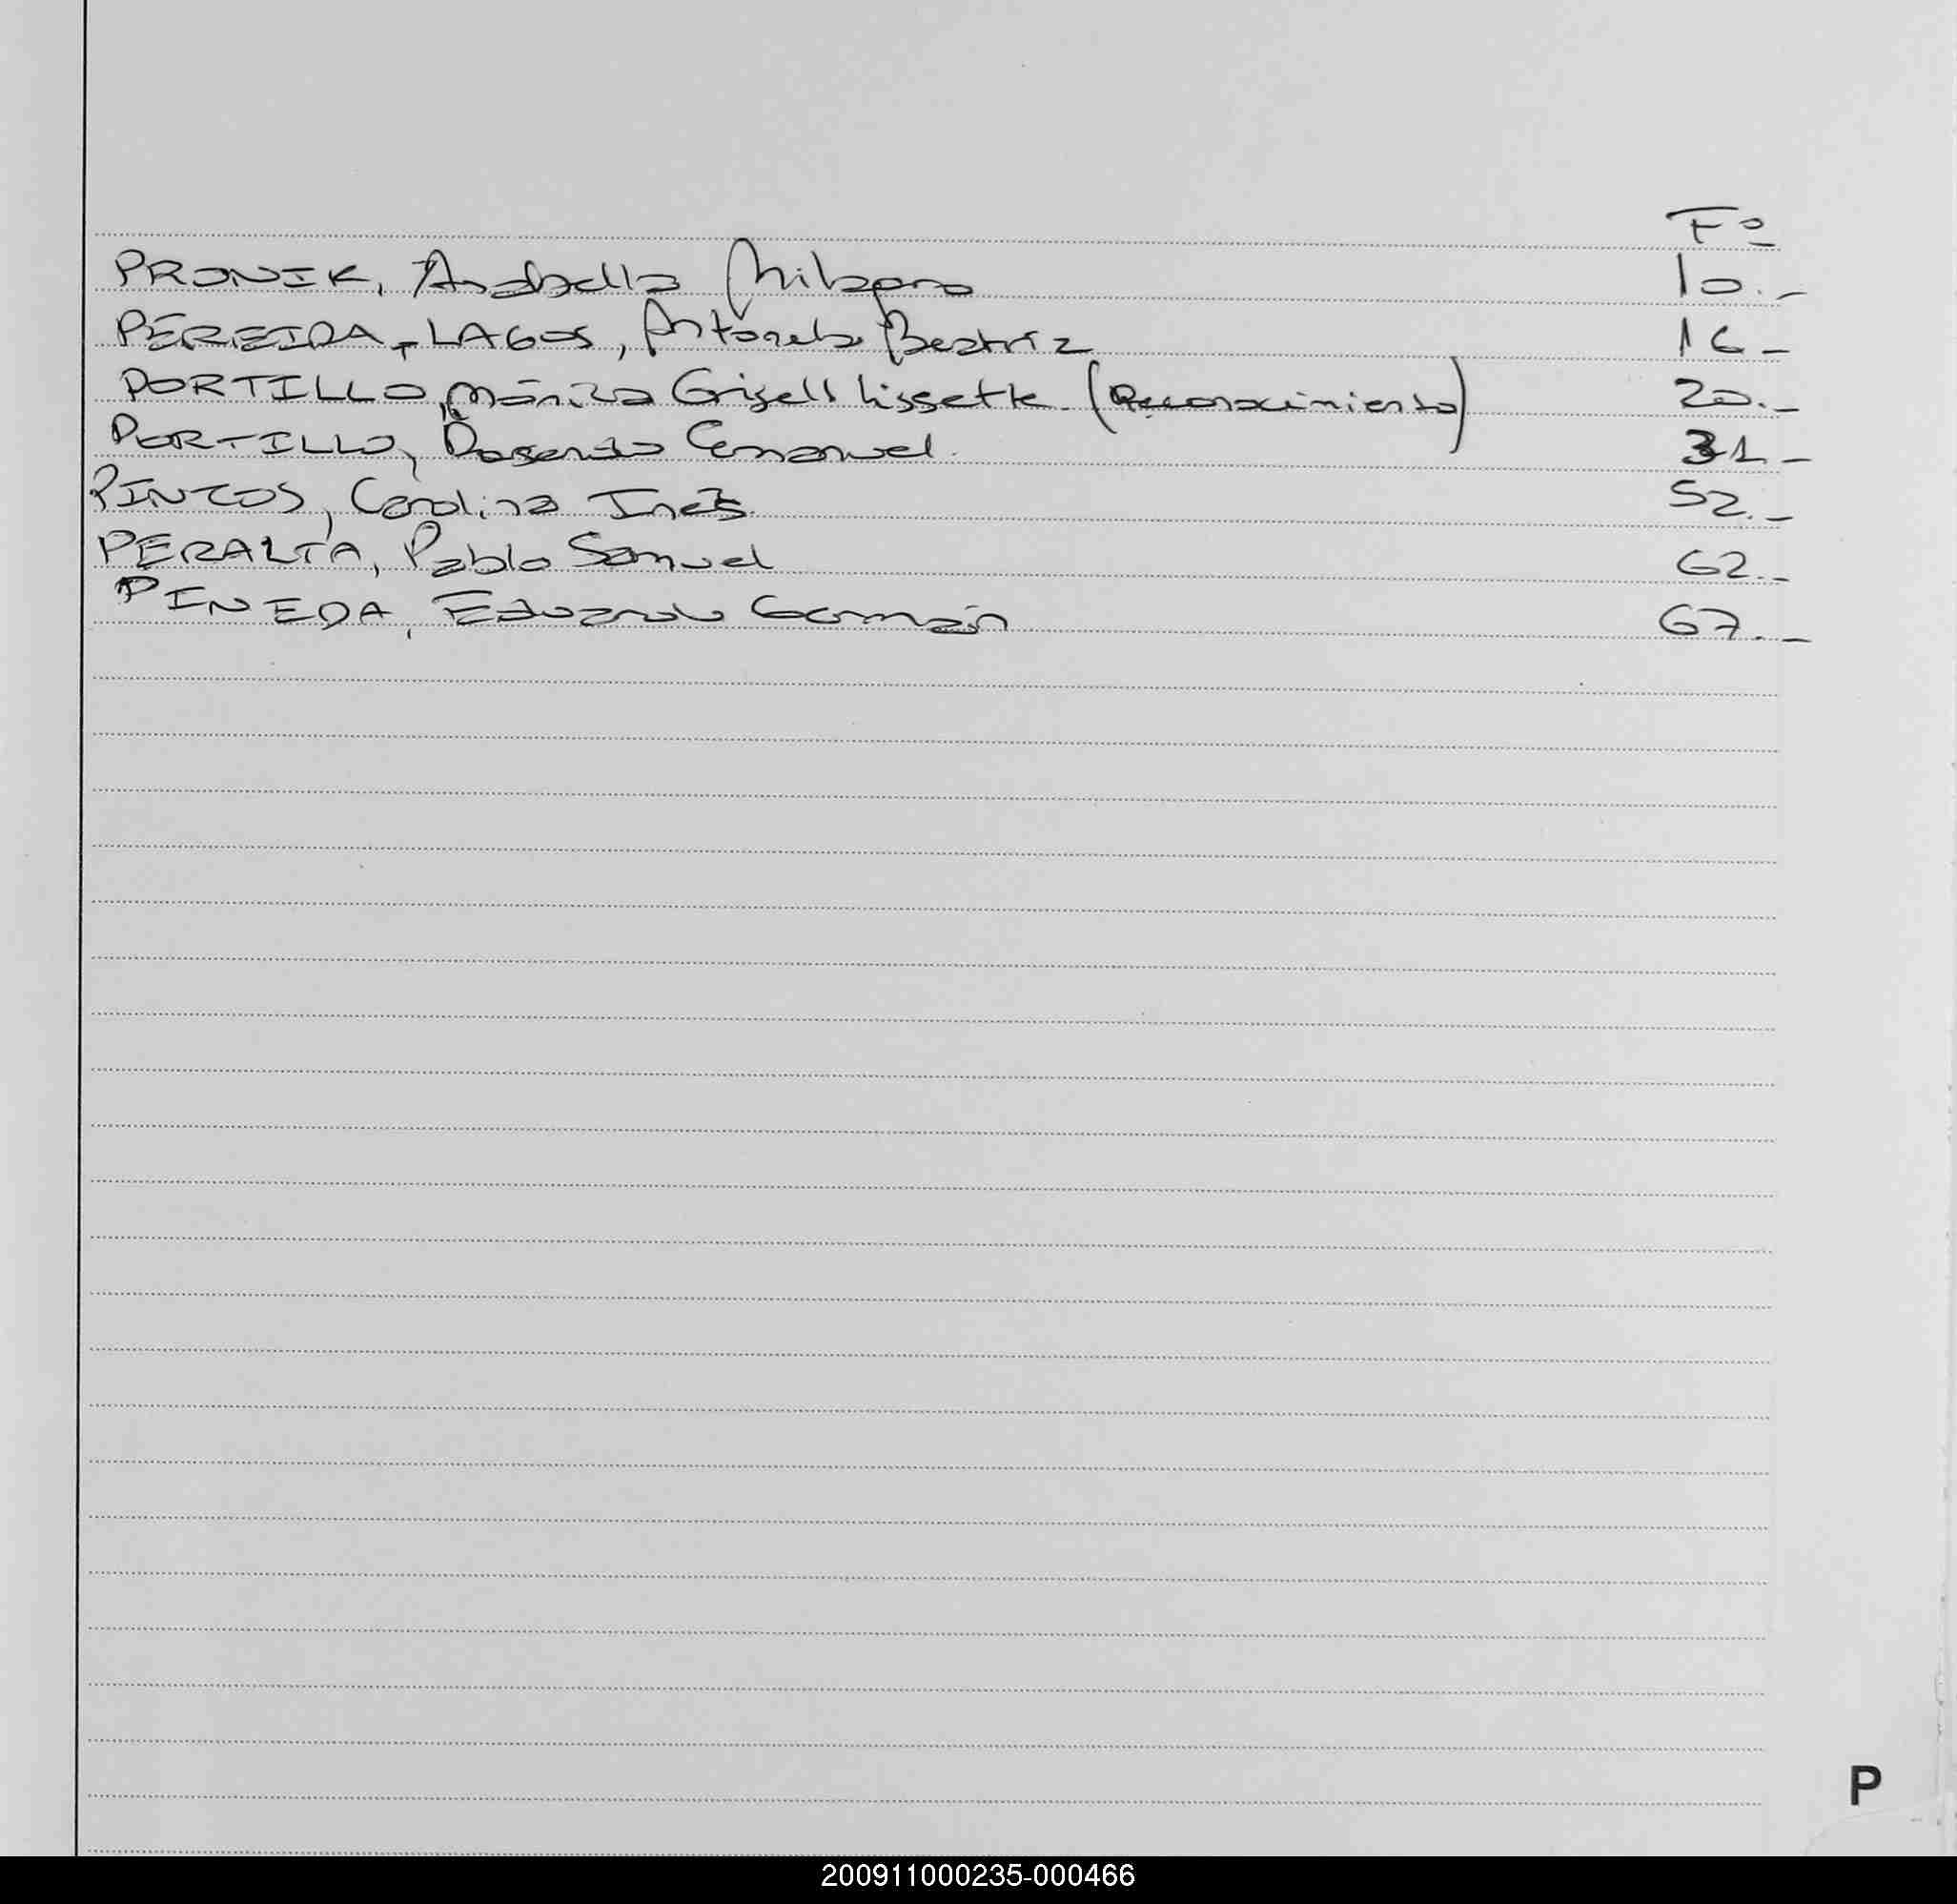 Fº
PRONIK, Anabella Milagro 10.-
PEREIRA-LAGOS, Antonela Beatriz 16-
PORTILLO, Mónica Grisell Lissette (Reconocimiento) 20.-
PORTILLO, Rosendo Emanuel. 31-
PINTOS, Carolina Inés 52.-
PERALTA, Pablo Samuel 62.-
PINEDA, Eduardo Germán 67.-
P
200911000235-000466